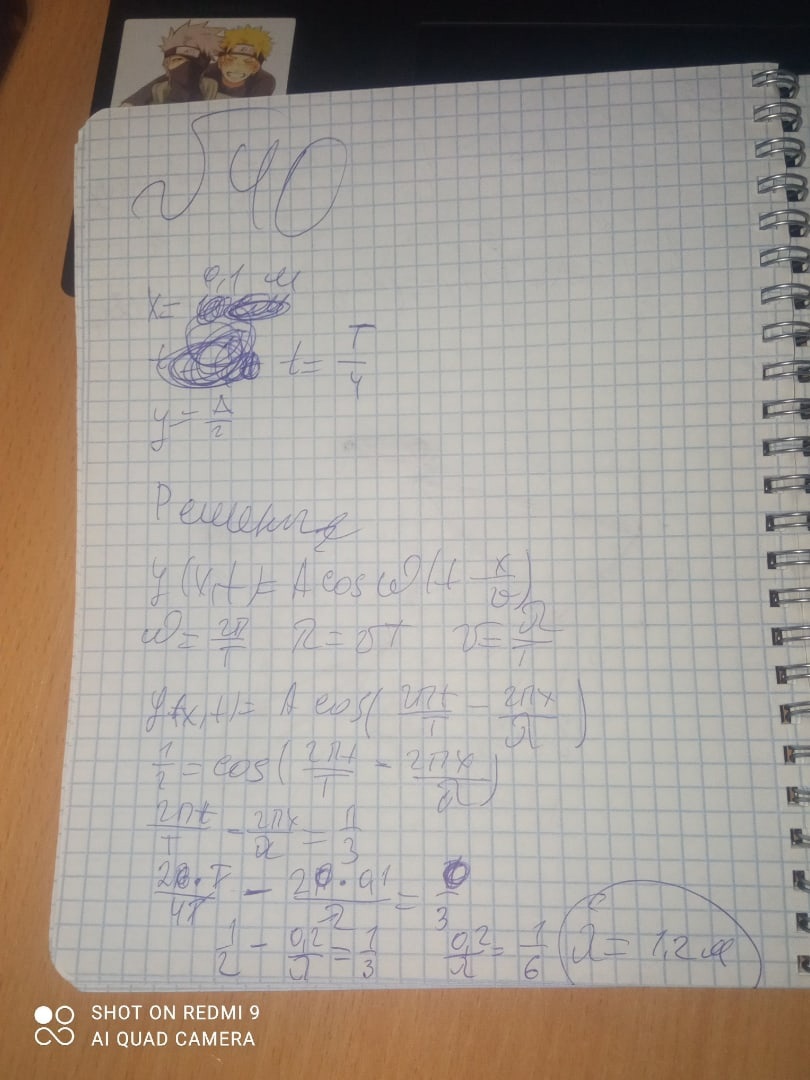 √40
x = 0,1 м
t = T/4
y = A/2
Решение
y(x,t) = A cos ω(t - x/v)
ω = 2π/T λ = vT v = λ/T
y(x,t) = A cos(2πt/T - 2πx/λ)
1/2 = cos(2πt/T - 2πx/λ)
2πt/T - 2πx/λ = π/3
2π·T/4T - 2π·0,1/λ = π/3
1/2 - 0,2/λ = 1/3 0,2/λ = 1/6 λ = 1,2 м
SHOT ON REDMI 9
AI QUAD CAMERA